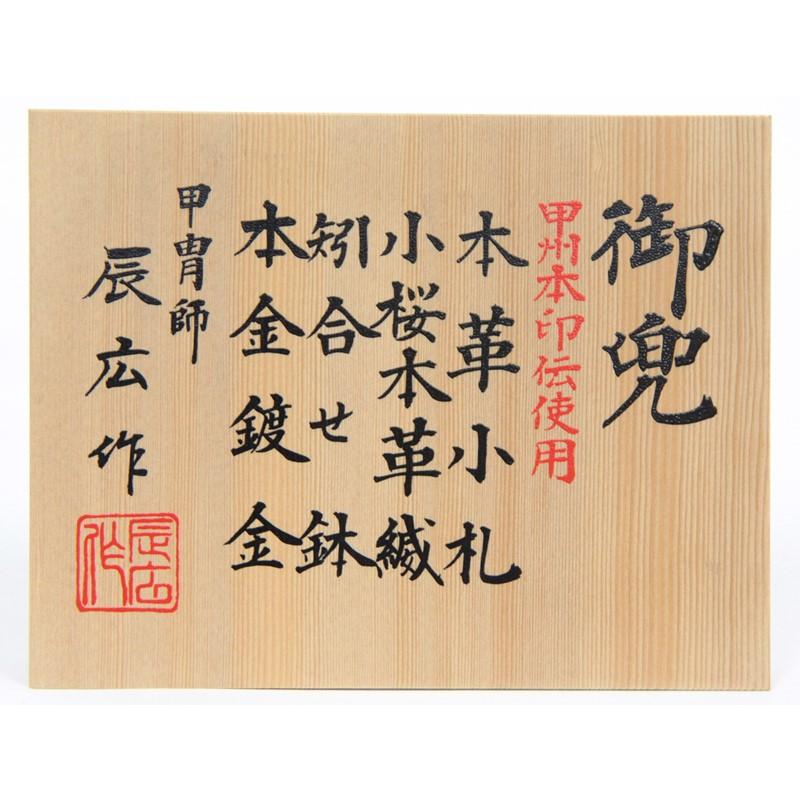 御兜
甲州本印伝使用
本革小札
小桜本革縅
矧合せ鉢
本金鍍金
甲冑師
辰広作
辰広作